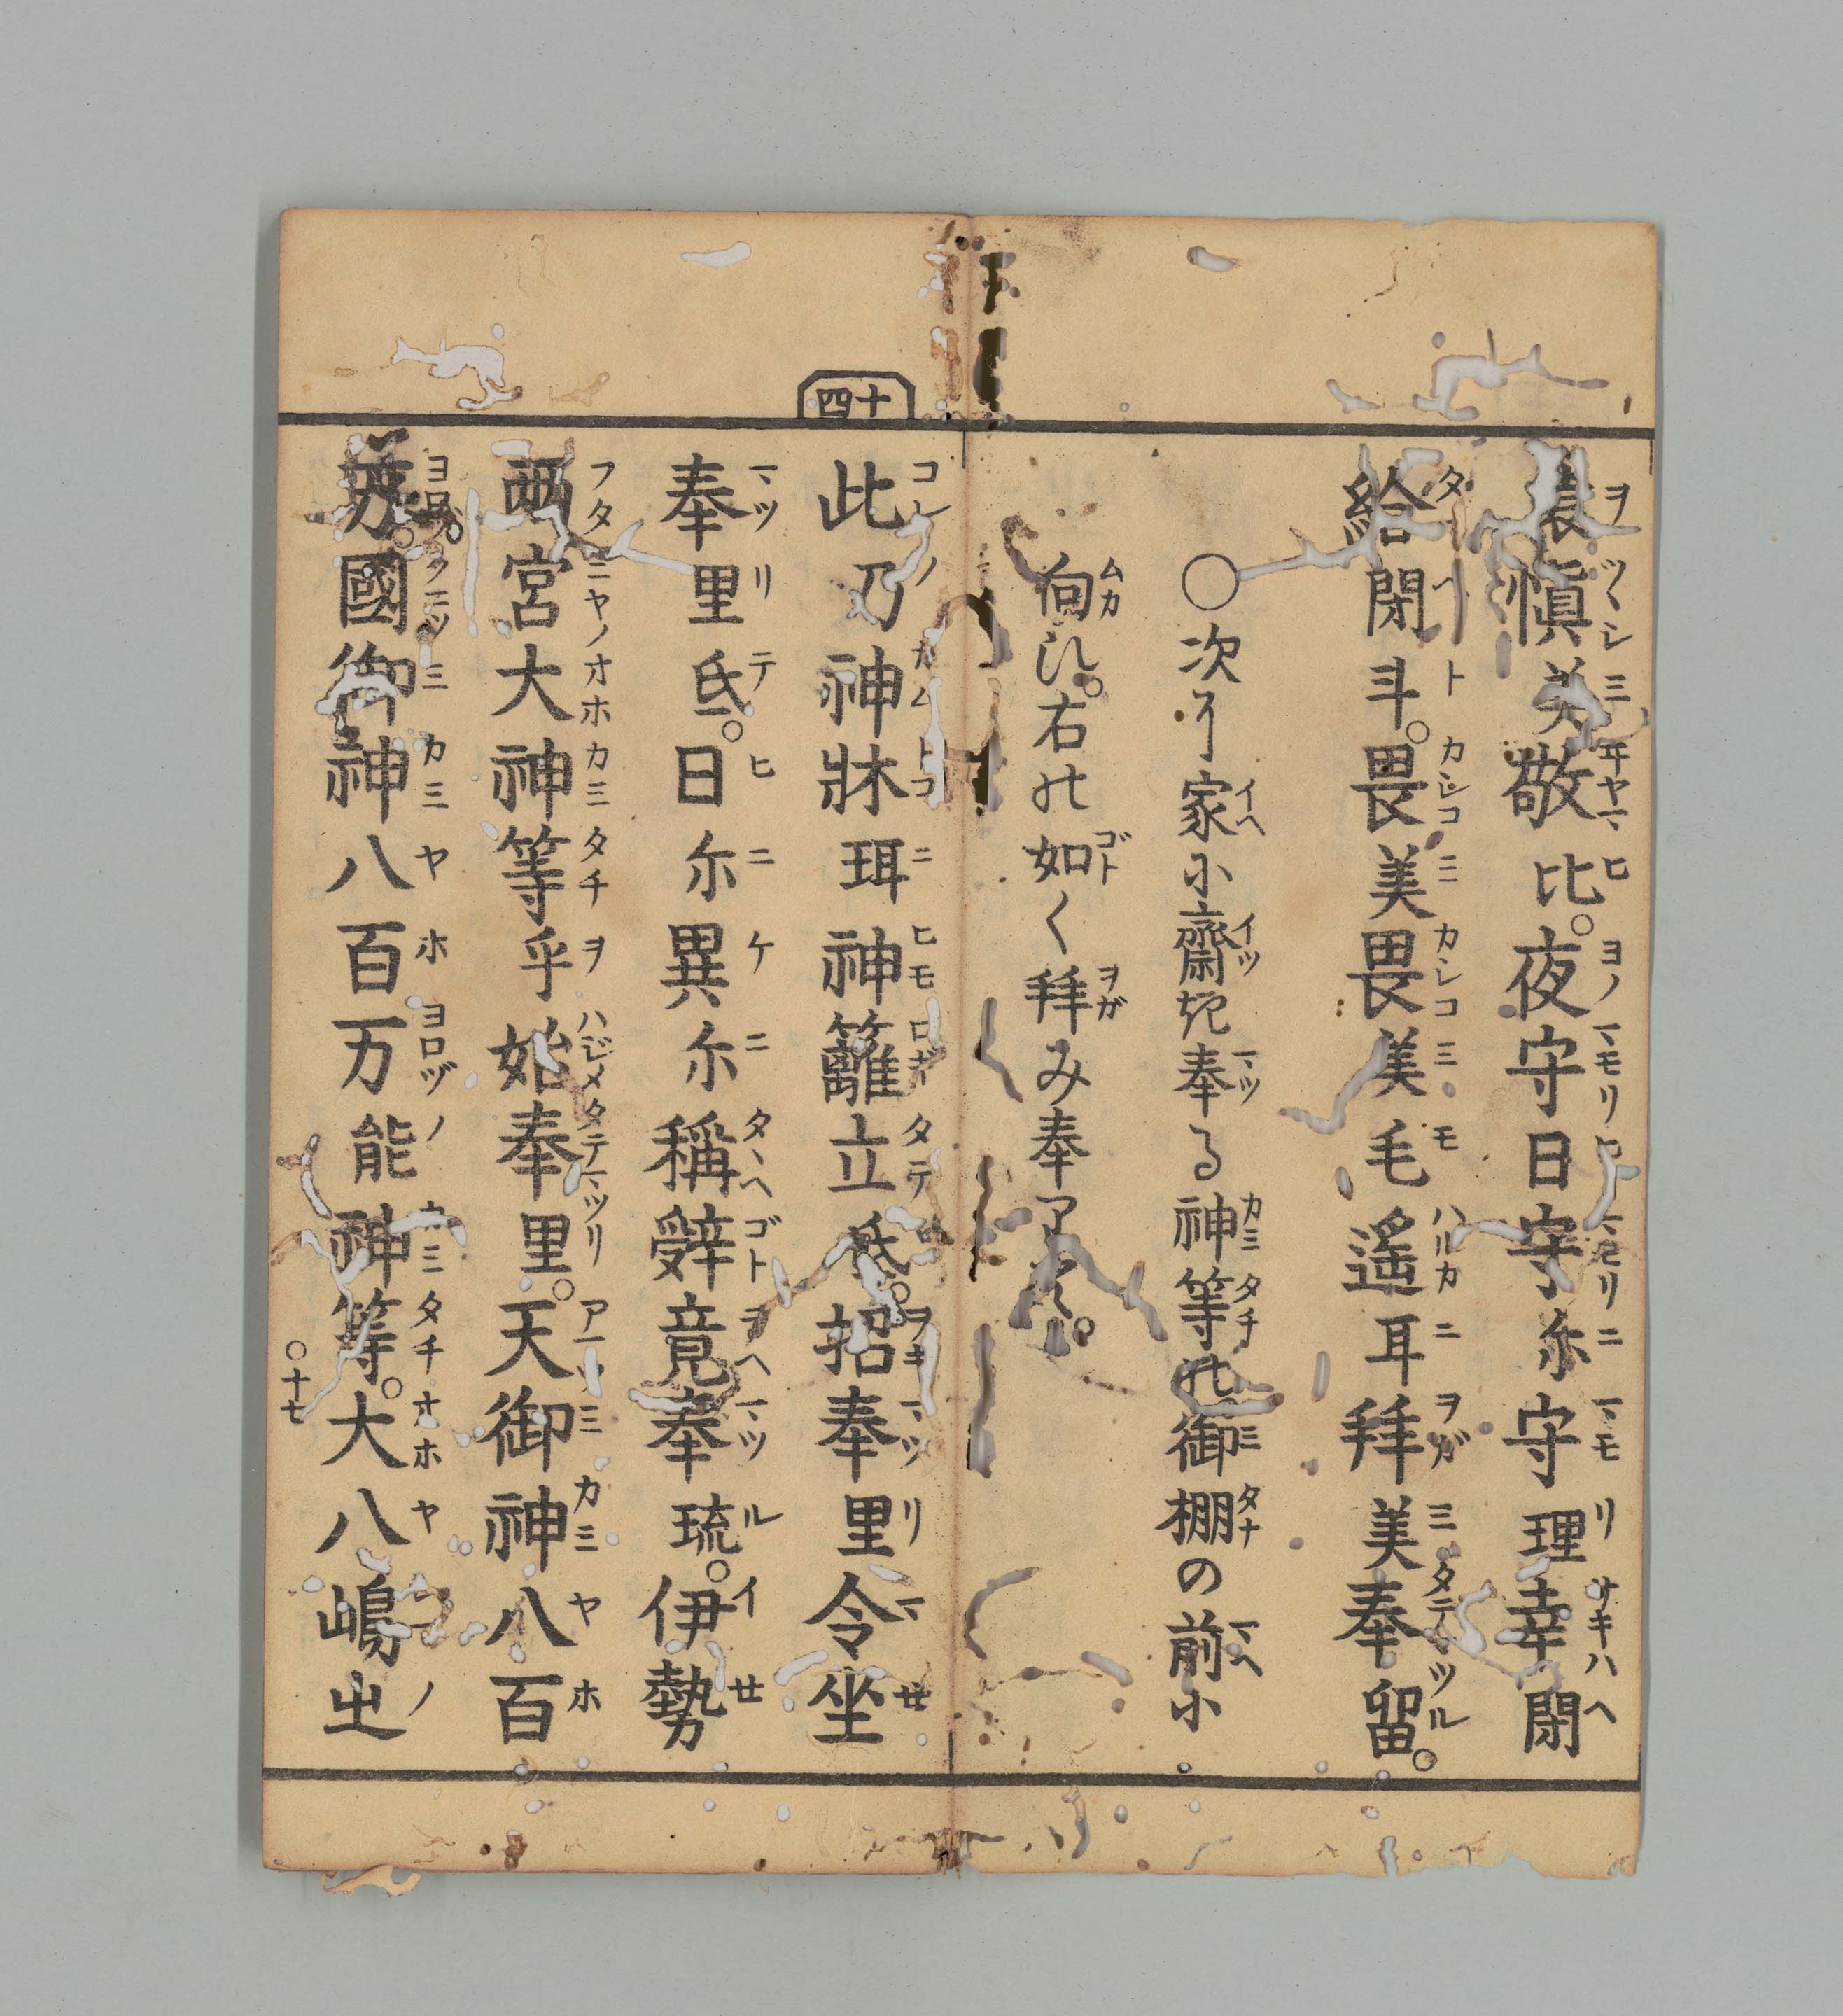 慎美敬比。夜守日守尓守理幸閉
給閉斗。畏美畏美毛遙耳拜美奉留。
○次に家に齋き奉る神等の御棚の前に
向ひ。右の如く拜み奉
四十
此乃神牀珥神籬立氐。招奉里令坐
奉里氐。日尓異尓稱辭竟奉琉。伊勢
兩宮大神等乎始奉里。天御神八百
万。國御神八百万能神等。大八嶋之
○十七